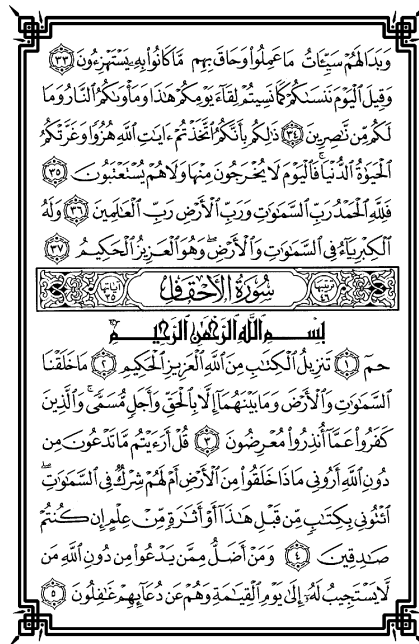 وَبَدَا لَهُمْ سَيِّـَٔاتُ مَا عَمِلُوا۟ وَحَاقَ بِهِم مَّا كَانُوا۟ بِهِۦ يَسْتَهْزِءُونَ ٣٣
وَقِيلَ ٱلْيَوْمَ نَنسَىٰكُمْ كَمَا نَسِيتُمْ لِقَآءَ يَوْمِكُمْ هَٰذَا وَمَأْوَىٰكُمُ ٱلنَّارُ وَمَا
لَكُم مِّن نَّٰصِرِينَ ٣٤ ذَٰلِكُم بِأَنَّكُمُ ٱتَّخَذْتُمْ ءَايَٰتِ ٱللَّهِ هُزُوًا وَغَرَّتْكُمُ
ٱلْحَيَوٰةُ ٱلدُّنْيَا ۚ فَٱلْيَوْمَ لَا يُخْرَجُونَ مِنْهَا وَلَا هُمْ يُسْتَعْتَبُونَ ٣٥
فَلِلَّهِ ٱلْحَمْدُ رَبِّ ٱلسَّمَٰوَٰتِ وَرَبِّ ٱلْأَرْضِ رَبِّ ٱلْعَٰلَمِينَ ٣٦ وَلَهُ
ٱلْكِبْرِيَآءُ فِى ٱلسَّمَٰوَٰتِ وَٱلْأَرْضِ ۖ وَهُوَ ٱلْعَزِيزُ ٱلْحَكِيمُ ٣٧
ترتيبها ٤٦ سُورَةُ الْأَحْقَافِ آياتها ٣٥
بِسْمِ ٱللَّهِ ٱلرَّحْمَٰنِ ٱلرَّحِيمِ
حمٓ ١ تَنزِيلُ ٱلْكِتَٰبِ مِنَ ٱللَّهِ ٱلْعَزِيزِ ٱلْحَكِيمِ ٢ مَا خَلَقْنَا
ٱلسَّمَٰوَٰتِ وَٱلْأَرْضَ وَمَا بَيْنَهُمَآ إِلَّا بِٱلْحَقِّ وَأَجَلٍ مُّسَمًّى ۚ وَٱلَّذِينَ
كَفَرُوا۟ عَمَّآ أُنذِرُوا۟ مُعْرِضُونَ ٣ قُلْ أَرَءَيْتُم مَّا تَدْعُونَ مِن
دُونِ ٱللَّهِ أَرُونِى مَاذَا خَلَقُوا۟ مِنَ ٱلْأَرْضِ أَمْ لَهُمْ شِرْكٌ فِى ٱلسَّمَٰوَٰتِ ۖ
ٱئْتُونِى بِكِتَٰبٍ مِّن قَبْلِ هَٰذَآ أَوْ أَثَٰرَةٍ مِّنْ عِلْمٍ إِن كُنتُمْ
صَٰدِقِينَ ٤ وَمَنْ أَضَلُّ مِمَّن يَدْعُوا۟ مِن دُونِ ٱللَّهِ مَن
لَّا يَسْتَجِيبُ لَهُۥٓ إِلَىٰ يَوْمِ ٱلْقِيَٰمَةِ وَهُمْ عَن دُعَآئِهِمْ غَٰفِلُونَ ٥